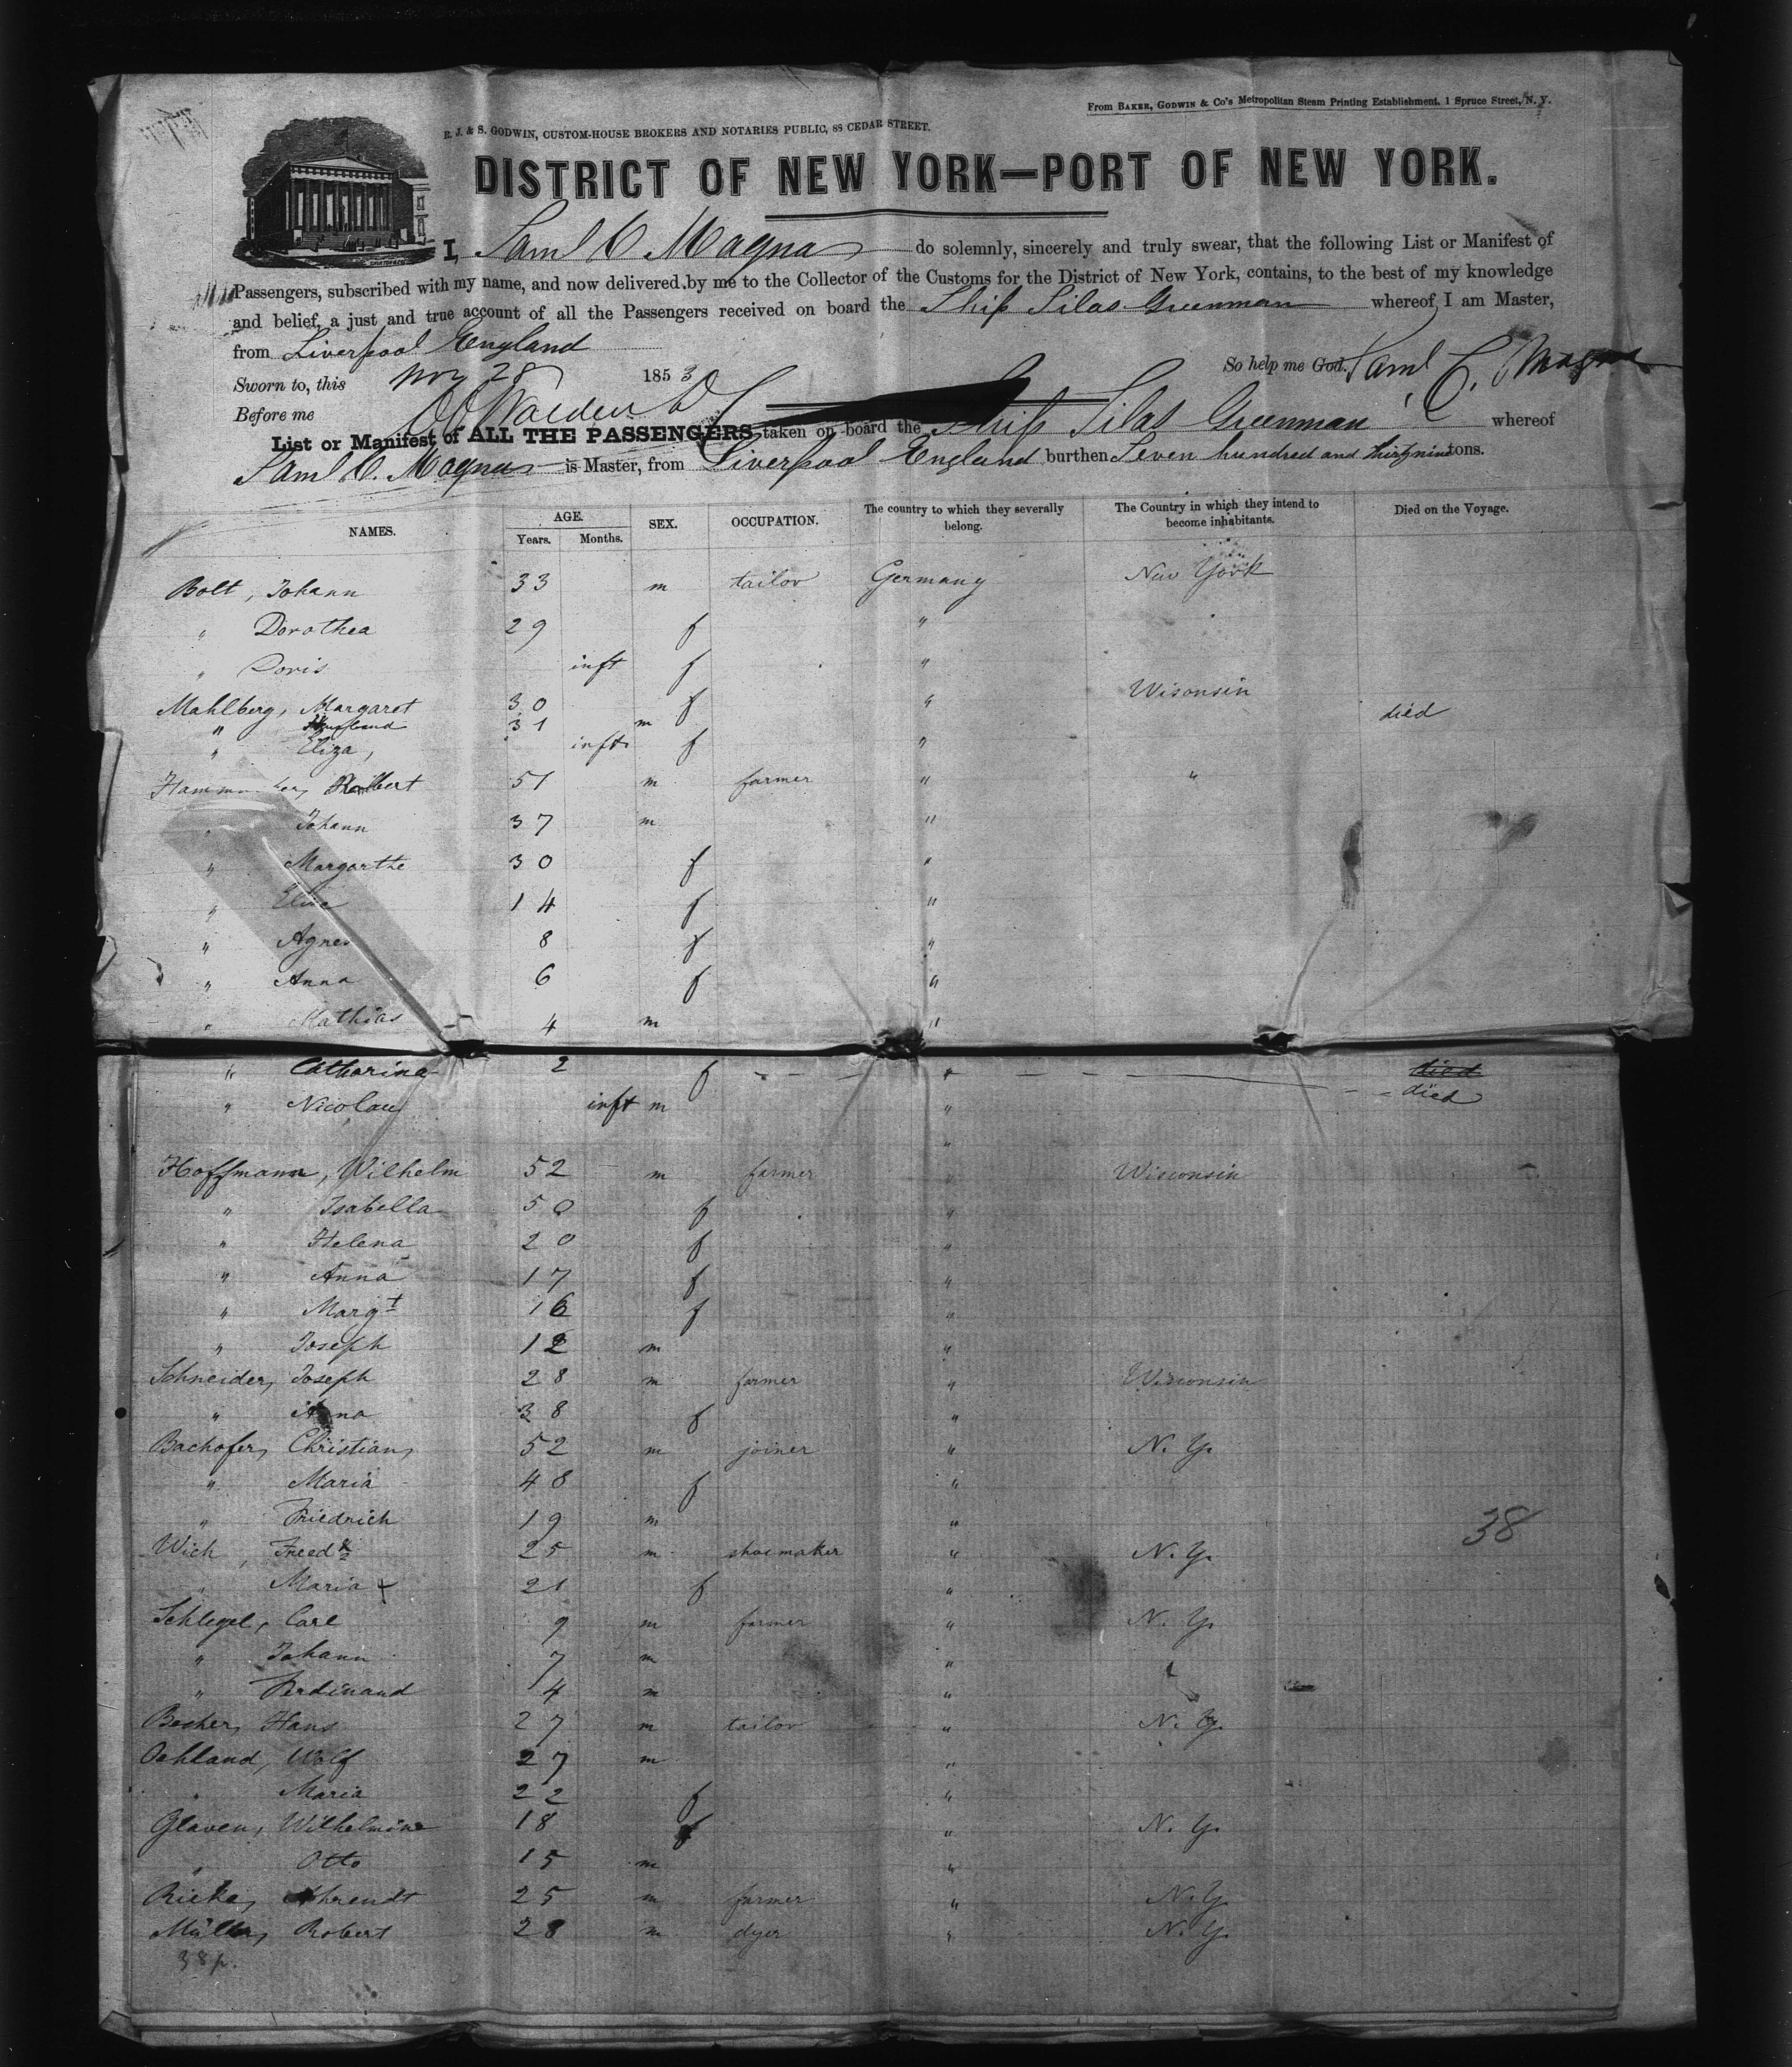 From BAKER, GODWIN & Co's Metropolitan Steam Printing Establishment, 1 Spruce Street, N. Y.
R. J. & S. GODWIN, CUSTOM-HOUSE BROKERS AND NOTARIES PUBLIC, 88 CEDAR STREET.
DISTRICT OF NEW YORK—PORT OF NEW YORK.
I, Saml C Magna do solemnly, sincerely and truly swear, that the following List or Manifest of
Passengers, subscribed with my name, and now delivered by me to the Collector of the Customs for the District of New York, contains, to the best of my knowledge
and belief, a just and true account of all the Passengers received on board the Ship Silas Greenman whereof I am Master,
from Liverpool England
So help me God. Saml C. Magna
Sworn to, this Nov 28 1853
Before me
List or Manifest of ALL THE PASSENGERS taken on board the Ship Silas Greenman whereof
Saml C. Magna is Master, from Liverpool England burthen Seven hundred and thirty nine tons.
NAMES. AGE. Years. Months. SEX. OCCUPATION. The country to which they severally belong. The Country in which they intend to become inhabitants. Died on the Voyage.
Bolt, Johann 33 m tailor Germany New York
" Dorothea 29 f "
" Doris inft f "
Mahlberg, Margaret 30 f " Wisonsin
" Husband 31 m died
" Eliza, inft f "
51 m farmer " "
" Johann 37 m "
" Margarthe 30 f "
" Elise 14 f "
" Agnes 8 f "
" Anna 6 f "
" Mathias 4 m "
" Catharina 2 f " died
" Nicolau inft m " died
"
Hoffmann, Wilhelm 52 m farmer " Wisconsin
" Isabella 50 f "
" Helena 20 f "
" Anna 17 f "
" Margt 16 f "
" Joseph 12 m "
Schneider, Joseph 28 m farmer " Wisconsin
" Anna 38 f "
Bachofer, Christian, 52 m joiner " N. Y.
" Maria 48 f "
" Friedrich 19 m "
38
Wich, Freedk 25 m shoemaker " N. Y.
" Maria 21 f "
Schlegel, Carl 9 m farmer " N. Y.
" Johann 7 m "
" Ferdinand 4 m "
Becher, Hans 27 m tailor " N. Y.
Oehland, Wolf 27 m "
" Maria 22 f "
Glaven, Wilhelmine 18 f " N. Y.
" Otto 15 m "
Rieke, Ahrendt 25 m farmer " N. Y.
Müller, Robert 28 m dyer " N. Y.
38 p.